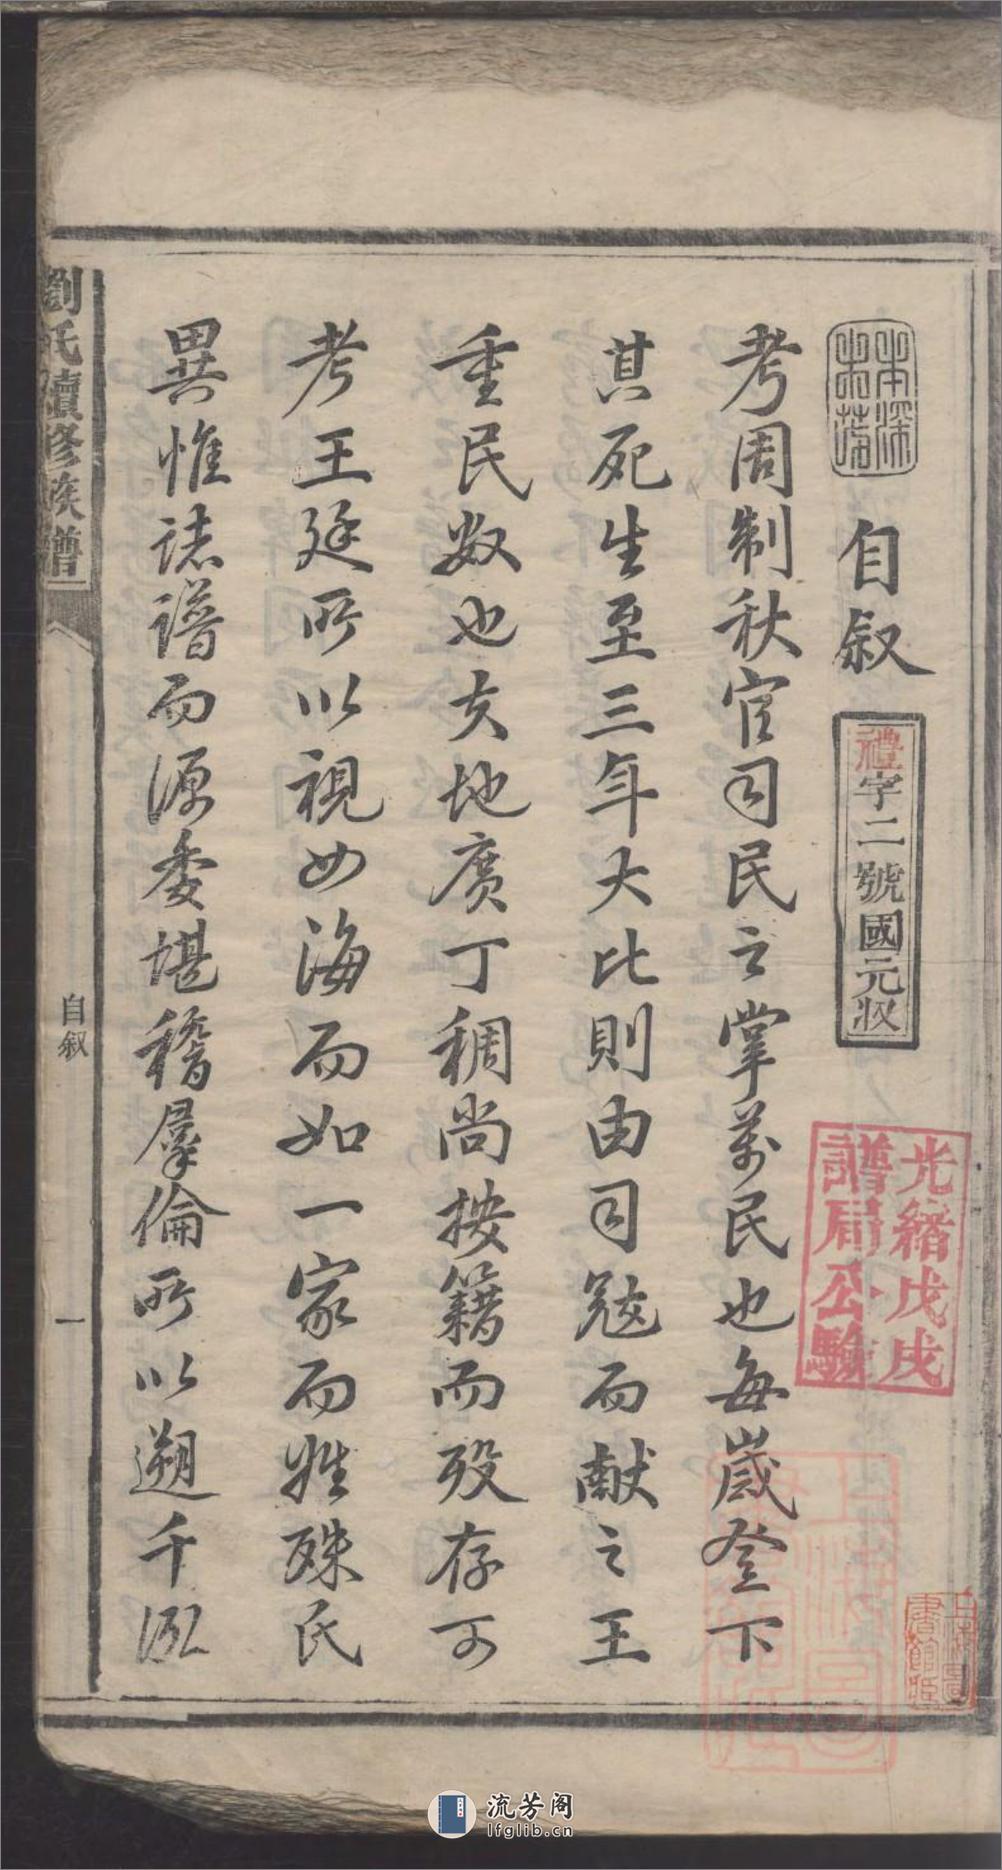 本深
末茂
自叙
禮字二號國元收
光緒戊戌
譜局公驗
考周制秋官司民之掌萬民也每歲登下
其死生至三年大比則由司寇而獻之王
重民數也夫地廣丁稠尚按籍而歿存可
考王廷所以視四海而如一家而姓殊氏
異惟誌譜而源委堪稽群倫所以遡千派
劉氏續修族譜
自叙
一
上海圖
書館藏
流芳阁
lfglib.cn